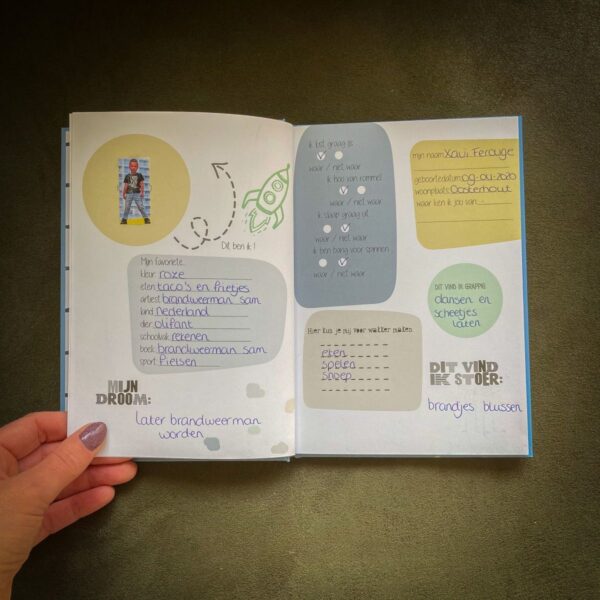 Dit ben ik!
Mijn favoriete...
kleur roze
eten taco's en frietjes
artiest brandweerman sam
land Nederland
dier olifant
schoolvak rekenen
boek brandweerman sam
sport fietsen
MIJN
DROOM:
later brandweerman
worden
waar / niet waar
ik hou van rommel
waar / niet waar
ik slaap graag uit
waar / niet waar
ik ben bang voor spinnen
waar / niet waar
Hier kun je mij voor wakker maken
eten
spelen
snoep
mijn naam Xavi Ferouge
geboortedatum 09-04-2020
woonplaats Oosterhout
waar ken ik jou van
DIT VIND IK GRAPPIG
dansen en
scheetjes
laten
DIT VIND
IK STOER:
brandjes blussen